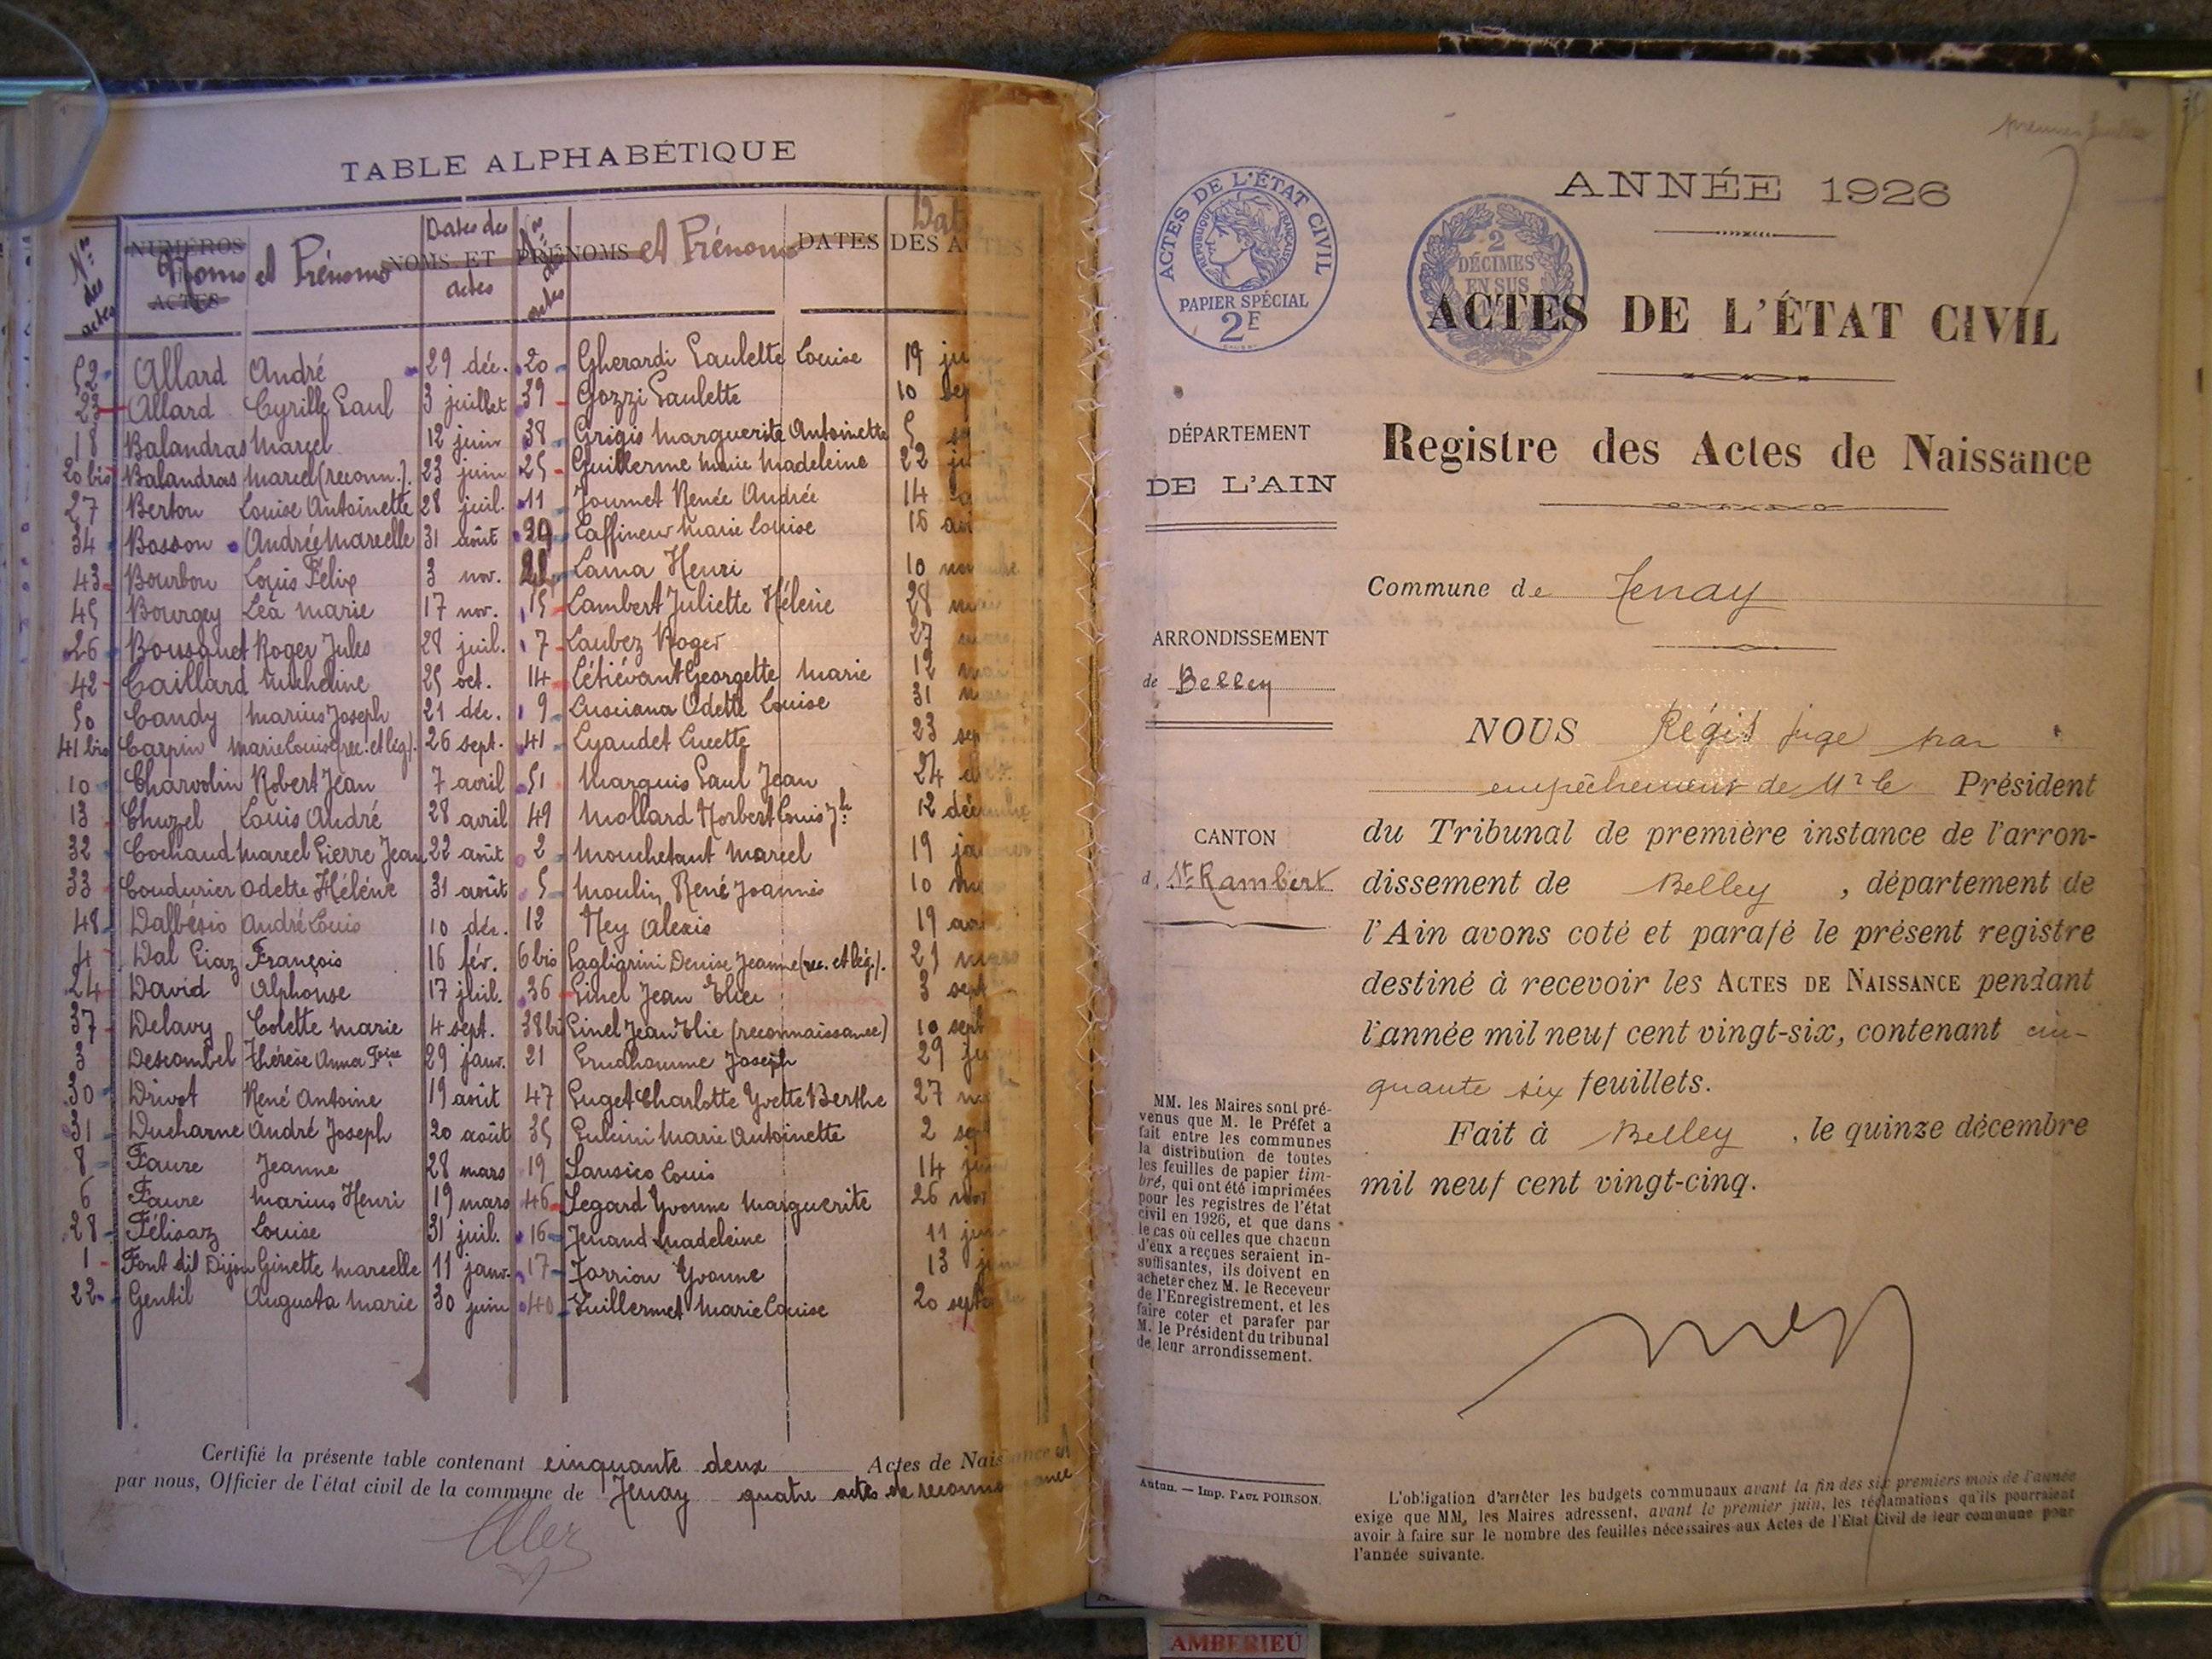 TABLE ALPHABÉTIQUE
Nos des actes
NUMÉROS ACTES
Noms et Prénoms
NOMS ET PRÉNOMS
Dates des actes
Nos des actes
et Prénoms
DATES DES ACTES
52 Allard André 29 déc. 20 Gherardi Paulette Louise 19
23 Allard Cyrille Paul 3 juillet 39 Gozzi Paulette 10 sep
18 Balandras Marcel 12 juin 38 Grigis Marguerite Antoinette 5
20 bis Balandras Marcel (reconn.) 23 juin 25 Guillerme Marie Madeleine 22
27 Berton Louise Antoinette 28 juil. 11 Journet Renée Andrée 14
34 Bosson Andrée Marcelle 31 août 29 Laffineur Marie Louise 16
43 Bourbon Louis Félix 3 nov. Lama Henri 10
45 Bourgey Léa Marie 17 nov. 15 Lambert Juliette Hélène 28
26 Bousquet Roger Jules 28 juil. 7 Laubez Roger 27
42 Caillard Micheline 25 oct. 14 Létiévant Georgette Marie 12
50 Candy Marius Joseph 21 déc. 9 Lusciana Odette Louise 31
41 bis Carpin Marie Louise (rec. et lég.) 26 sept. 41 Lyaudet Lucette 23 sep
10 Charvolin Robert Jean 7 avril 51 Marquis Paul Jean 24
13 Chuzel Louis André 28 avril 49 Mollard Norbert Louis Jh 12 décembre
32 Cochaud Marcel Pierre Jean 22 août 2 Mouchetant Marcel 19
33 Coudurier Odette Hélène 31 août 5 Moulin René Joannis 10
48 Dalbésio André Louis 10 déc. 12 Ney Alexis 19
4 Dal Piaz François 16 fév. 6 bis Pagliarini Denise Jeanne (rec. et lég.). 21
24 David Alphonse 17 juil. 36 Pinel Jean Elie 3 sept
37 Delavy Colette Marie 4 sept. 38 bis Pinel Jean Elie (reconnaissance) 10 sept
3 Descombel Thérèse Anna 29 janv. 21 Prudhomme Joseph 29
30 Drivot René Antoine 19 août 47 Puget Charlotte Yvette Berthe 27
31 Ducharne André Joseph 20 août 35 Pulcini Marie Antoinette 2
8 Faure Jeanne 28 mars 19 Sansico Louis 14
6 Faure Marius Henri 19 mars 46 Segard Yvonne Marguerite 26
28 Félisaz Louise 31 juil. 16 Tenand Madeleine 11
1 Font dit Dijon Ginette Marcelle 11 janv. 17 Torrion Yvonne 13
22 Gentil Augusta Marie 30 juin 40 Vuillermet Marie Louise 20 sept
Certifié la présente table contenant cinquante deux Actes de Naissance et
par nous, Officier de l'état civil de la commune de Tenay quatre actes de reconnaissance
ANNÉE 1926
ACTES DE L'ÉTAT CIVIL
RÉPUBLIQUE FRANÇAISE
PAPIER SPÉCIAL
2F
2 DÉCIMES EN SUS
ACTES DE L'ÉTAT CIVIL
Registre des Actes de Naissance
DÉPARTEMENT
DE L'AIN
Commune de Tenay
ARRONDISSEMENT
de Belley
CANTON
d. St Rambert
NOUS Régis juge par
empêchement de Mr le Président
du Tribunal de première instance de l'arron-
dissement de Belley, département de
l'Ain avons coté et parafé le présent registre
destiné à recevoir les ACTES DE NAISSANCE pendant
l'année mil neuf cent vingt-six, contenant cin-
quante six feuillets.
Fait à Belley, le quinze décembre
mil neuf cent vingt-cinq.
MM. les Maires sont pré-
venus que M. le Préfet a
fait entre les communes
la distribution de toutes
les feuilles de papier tim-
bré, qui ont été imprimées
pour les registres de l'état
civil en 1926, et que dans
le cas où celles que chacun
d'eux a reçues seraient in-
suffisantes, ils doivent en
acheter chez M. le Receveur
de l'Enregistrement, et les
faire coter et parafer par
M. le Président du tribunal
de leur arrondissement.
Autun. — Imp. PAUL POIRSON.
L'obligation d'arrêter les budgets communaux avant la fin des six premiers mois de l'année
exige que MM. les Maires adressent, avant le premier juin, les réclamations qu'ils pourraient
avoir à faire sur le nombre des feuilles nécessaires aux Actes de l'Etat Civil de leur commune pour
l'année suivante.
AMBERIEU